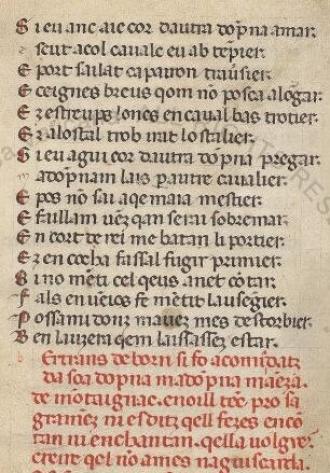 S i eu anc aic cor dautra dõpna amar.
E scut acol cavalc eu ab tẽpier.
E port sailat capairon travsier.
E ceignes breus qom nõ posca alogar.
E z estreups loncs en caval bas trotier.
E z alostal trob irat lo stalier.
S i eu agui cor dautra dõpna pregar.
M adõpnam lais p autre cavalier.
E pos nõ sai aqe maia mestier.
E faillam vẽz qan serai sobremar.
E n cort de rei me batan li portier.
E z en cocha fassal fugir primier.
S i no mẽti cel qeus anet cõtar.
F als enveios fe mẽtit lausegier.
P os sami donz mavez mes destorbier.
B en lauzera qem laissassez estar.
Bertrans de born si fo acomĩdatz
da soa dõpna madõpna maẽza.
de mõtaignac. e noill tẽc pro sa
gramẽz ni esditz qell fezes en cõ
tan ni en chantan. qella volgues
creire qel nõ ames naguiscarda.